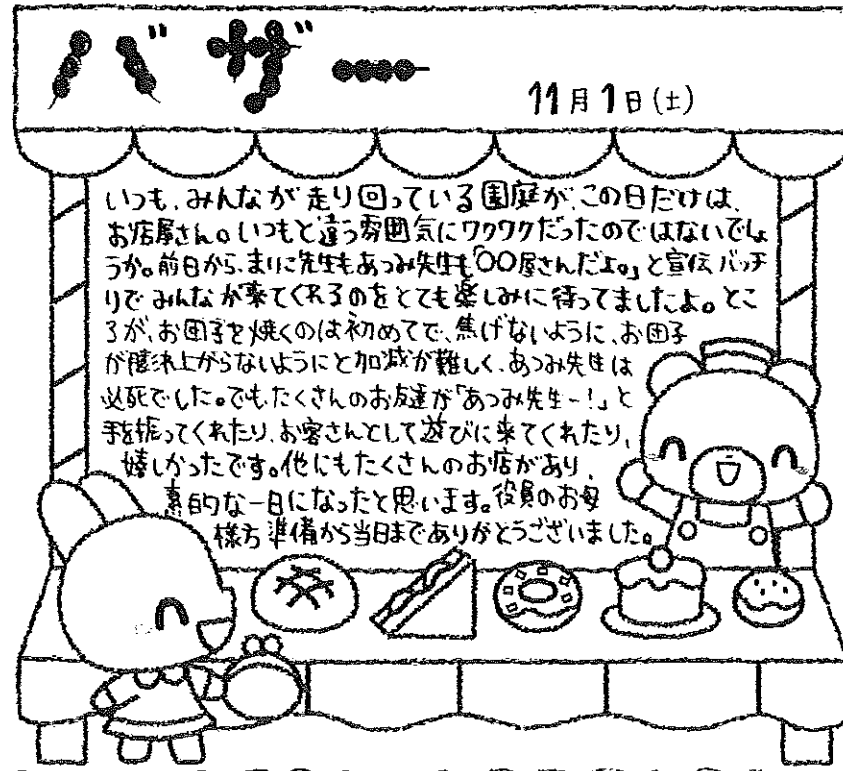 バザー
11月1日(土)
いつも、みんなが走り回っている園庭が、この日だけは、
お店屋さん。いつもと違う雰囲気にワクワクだったのではないでしょ
うか。前日から、まりに先生もあつみ先生も「〇〇屋さんだよ。」と宣伝バッチ
リでみんなが来てくれるのをとても楽しみに待ってましたよ。とこ
ろが、お団子を焼くのは初めてで、焦げないように、お団子
が膨れ上がらないようにと加減が難しく、あつみ先生は
必死でした。でも、たくさんのお友達が「あつみ先生ー!」と
手を振ってくれたり、お客さんとして遊びに来てくれたり、
嬉しかったです。他にもたくさんのお店があり、
素的な一日になったと思います。役員のお母
様方準備から当日までありがとうございました。